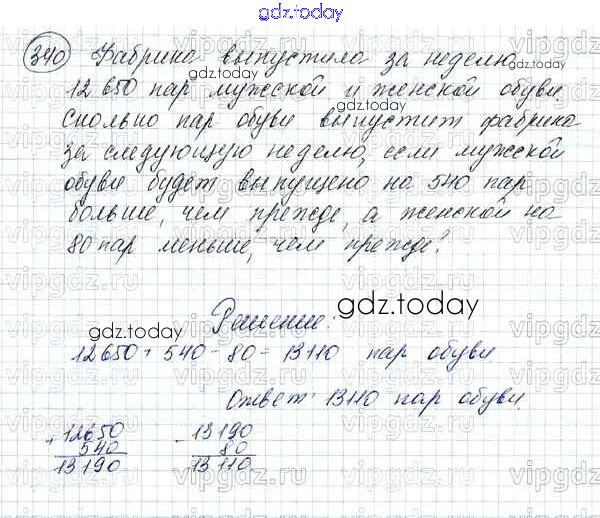 gdz.today
340 Фабрика выпустила за неделю
gdz.today
12 650 пар мужской и женской обуви.
gdz.today
Сколько пар обуви выпустит фабрика
за следующую неделю, если мужской
обуви будет выпущено на 540 пар
больше, чем прежде, а женской на
80 пар меньше, чем прежде?
Решение:
gdz.today
gdz.today
12650 + 540 - 80 = 13110 пар обуви
Ответ: 13110 пар обуви.
+ 12650 - 13190
540 80
13190 13110
vipgdz.ru